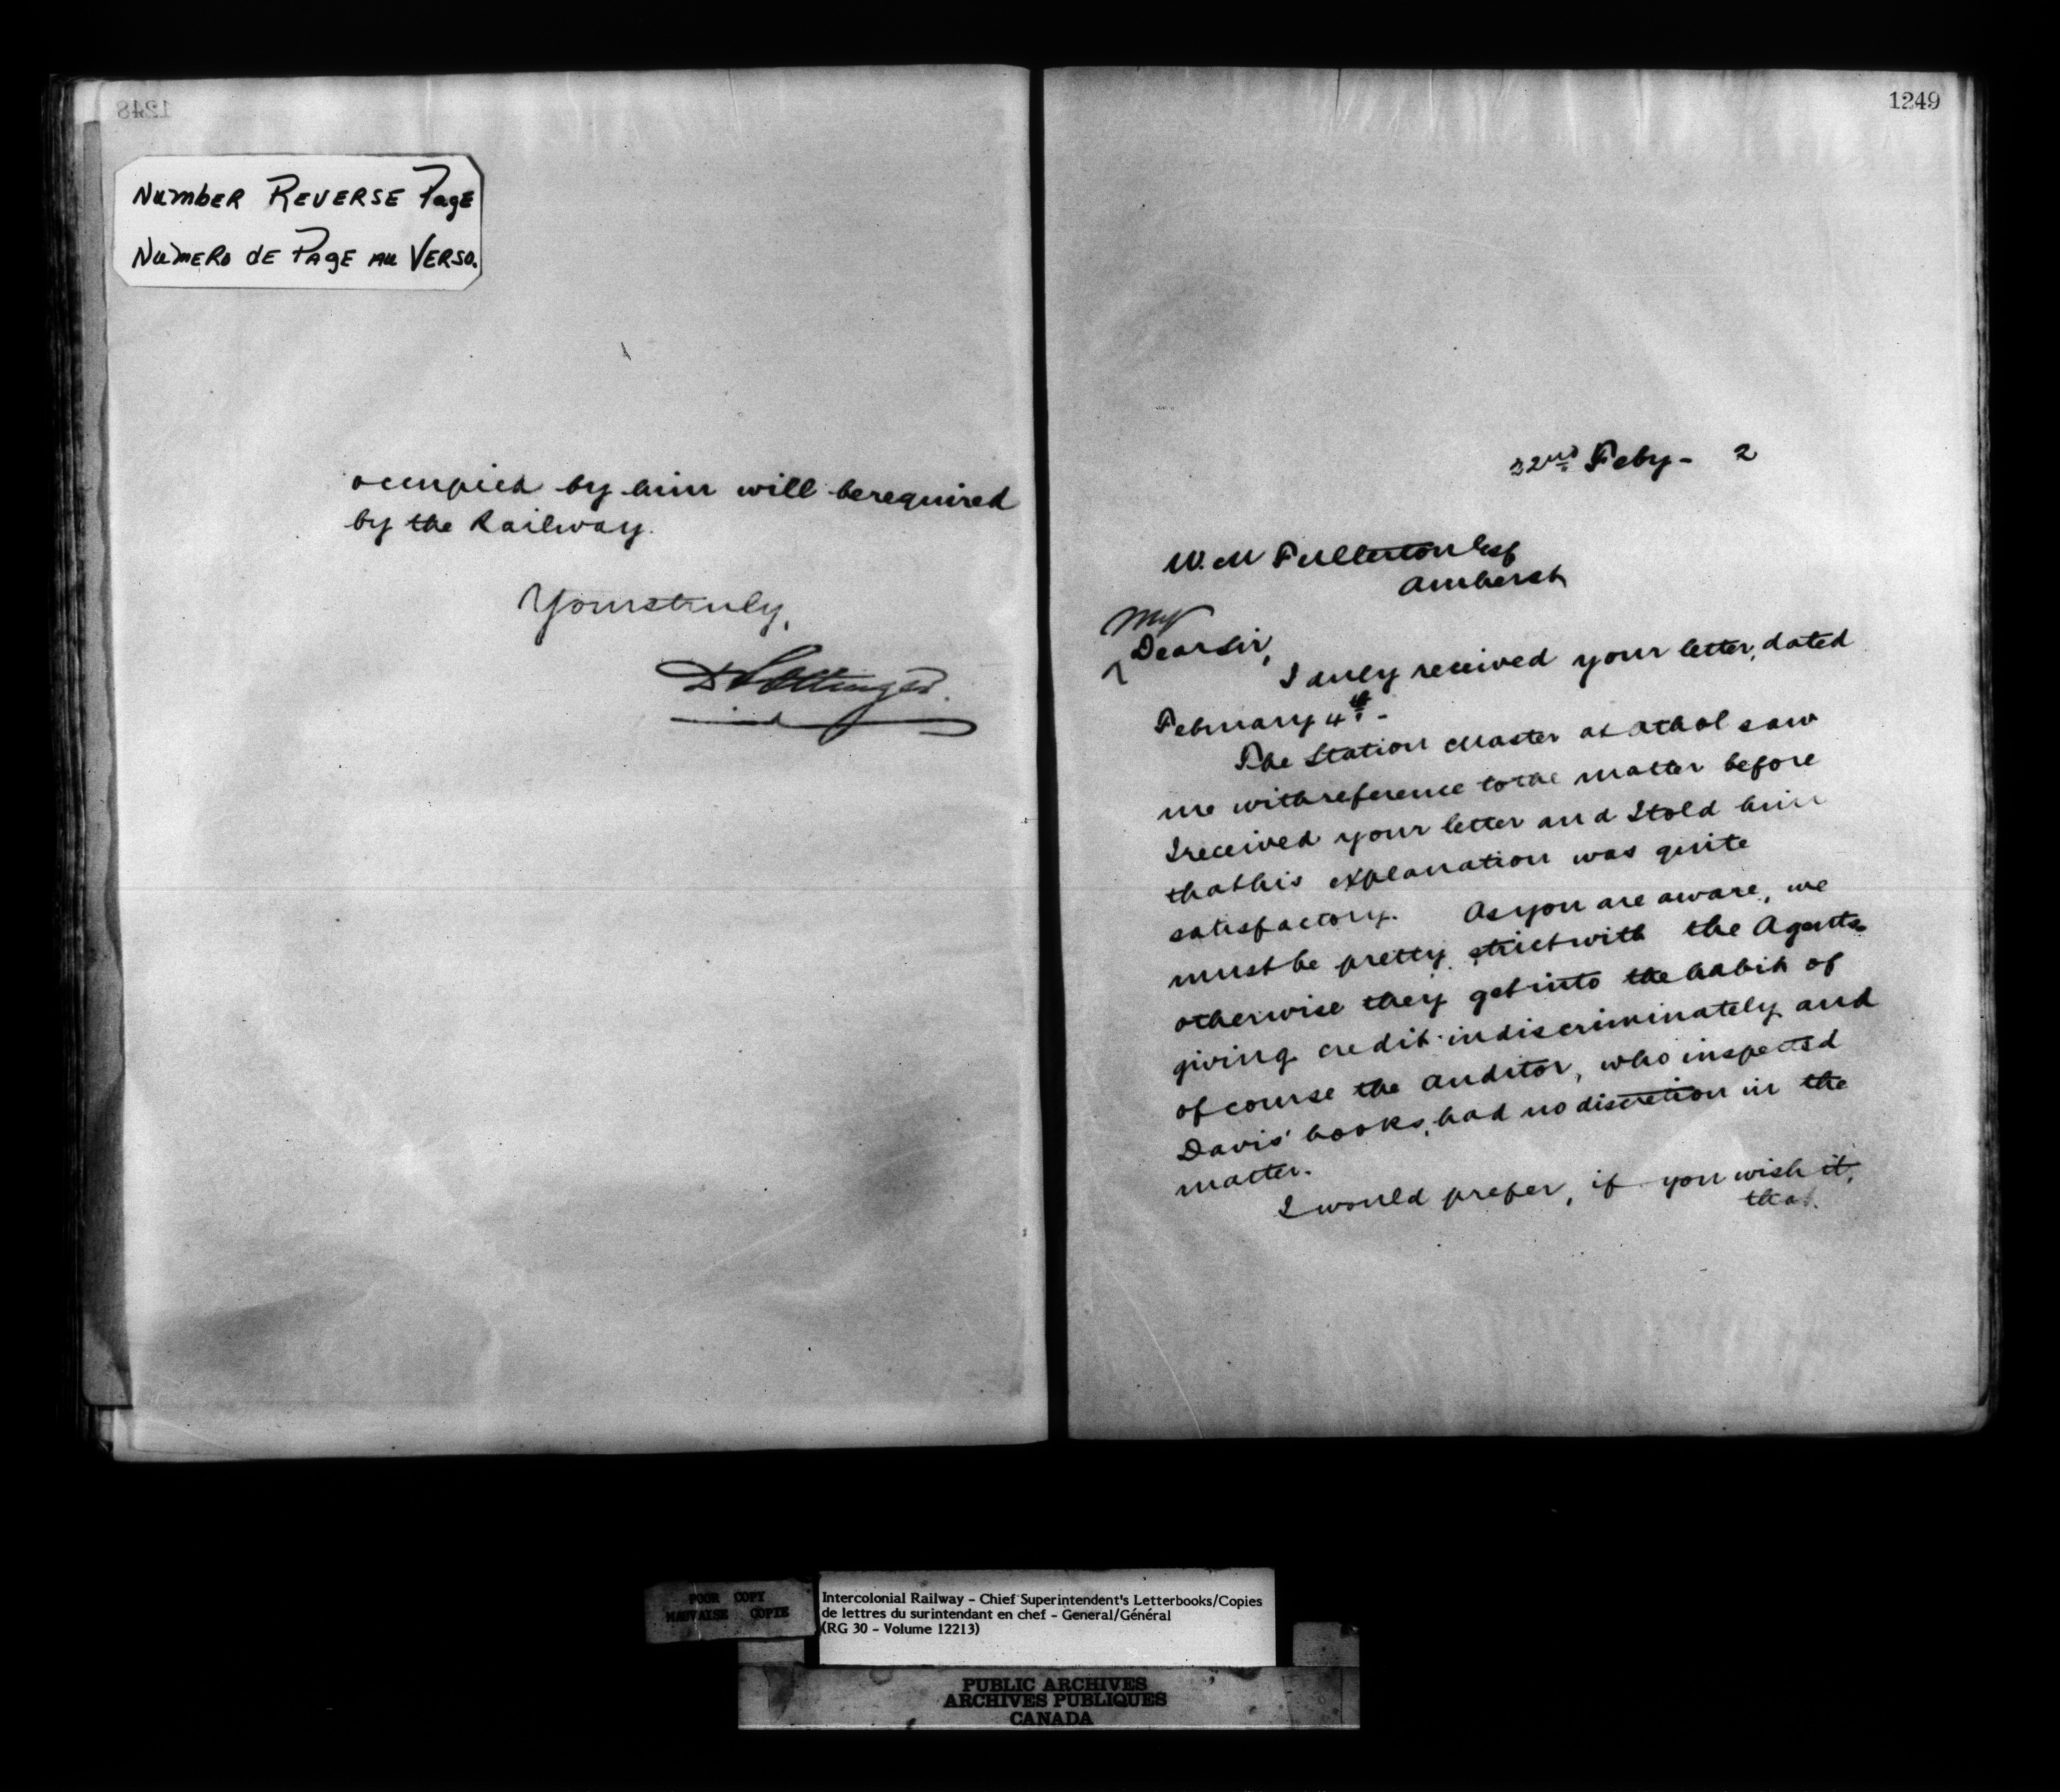 1248
NUMBER REVERSE PAGE
NUMERO DE PAGE AU VERSO.
occupied by him will be required
by the Railway.
Yours truly,
D Pottinger
1249
22nd Feby - 2
W. M Fullerton Esq
Amherst
My
Dear Sir,
I duly received your letter, dated
February 4th -
The Station Master at Athol saw
me with reference to the matter before
I received your letter and I told him
that his explanation was quite
satisfactory. As you are aware, we
must be pretty strict with the Agents
otherwise they get into the habit of
giving credit indiscriminately and
of course the Auditor, who inspected
Davis' books, had no discretion in the
matter.
I would prefer, if you wish it,
that
POOR COPY
MAUVAISE COPIE
Intercolonial Railway - Chief Superintendent's Letterbooks/Copies
de lettres du surintendant en chef - General/Général
(RG 30 - Volume 12213)
PUBLIC ARCHIVES
ARCHIVES PUBLIQUES
CANADA